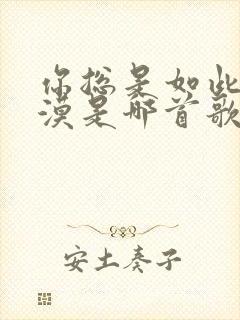 你总是如此
漠是哪首歌
安土奏子